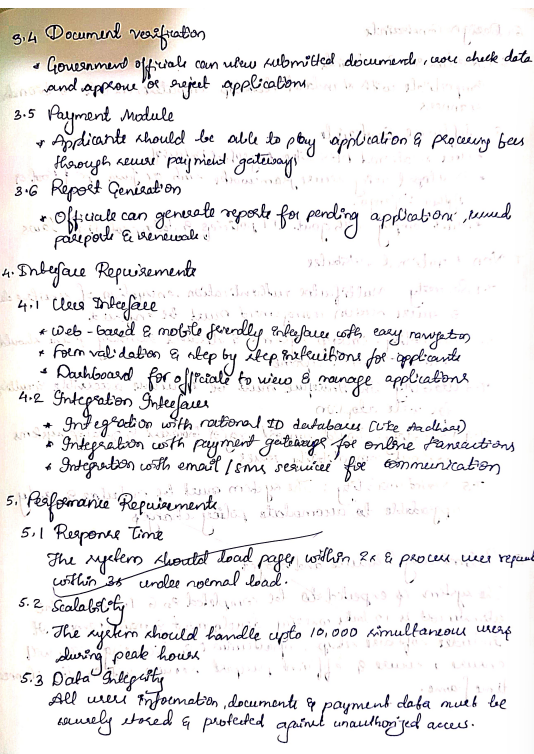 3.4 Document verification
* Government officials can view submitted documents, cross check data
and approve or reject applications
3.5 Payment Module
* Applicants should be able to pay application & processing fees
through secure payment gateways
3.6 Report Generation
* Officials can generate reports for pending applications, issued
passports & renewals.
4. Interface Requirements
4.1 User Interface
* Web-based & mobile friendly interface with easy navigation
* Form validation & step by step instructions for applicants
* Dashboard for officials to view & manage applications
4.2 Integration Interfaces
* Integration with national ID databases (like Aadhaar)
* Integration with payment gateways for online transactions
* Integration with email / sms services for communication
5. Performance Requirements
5.1 Response Time
The system should load pages within 2s & process user request
within 3s under normal load.
5.2 Scalability
The system should handle upto 10,000 simultaneous users
during peak hours
5.3 Data Integrity
All users information, documents & payment data must be
securely stored & protected against unauthorized access.